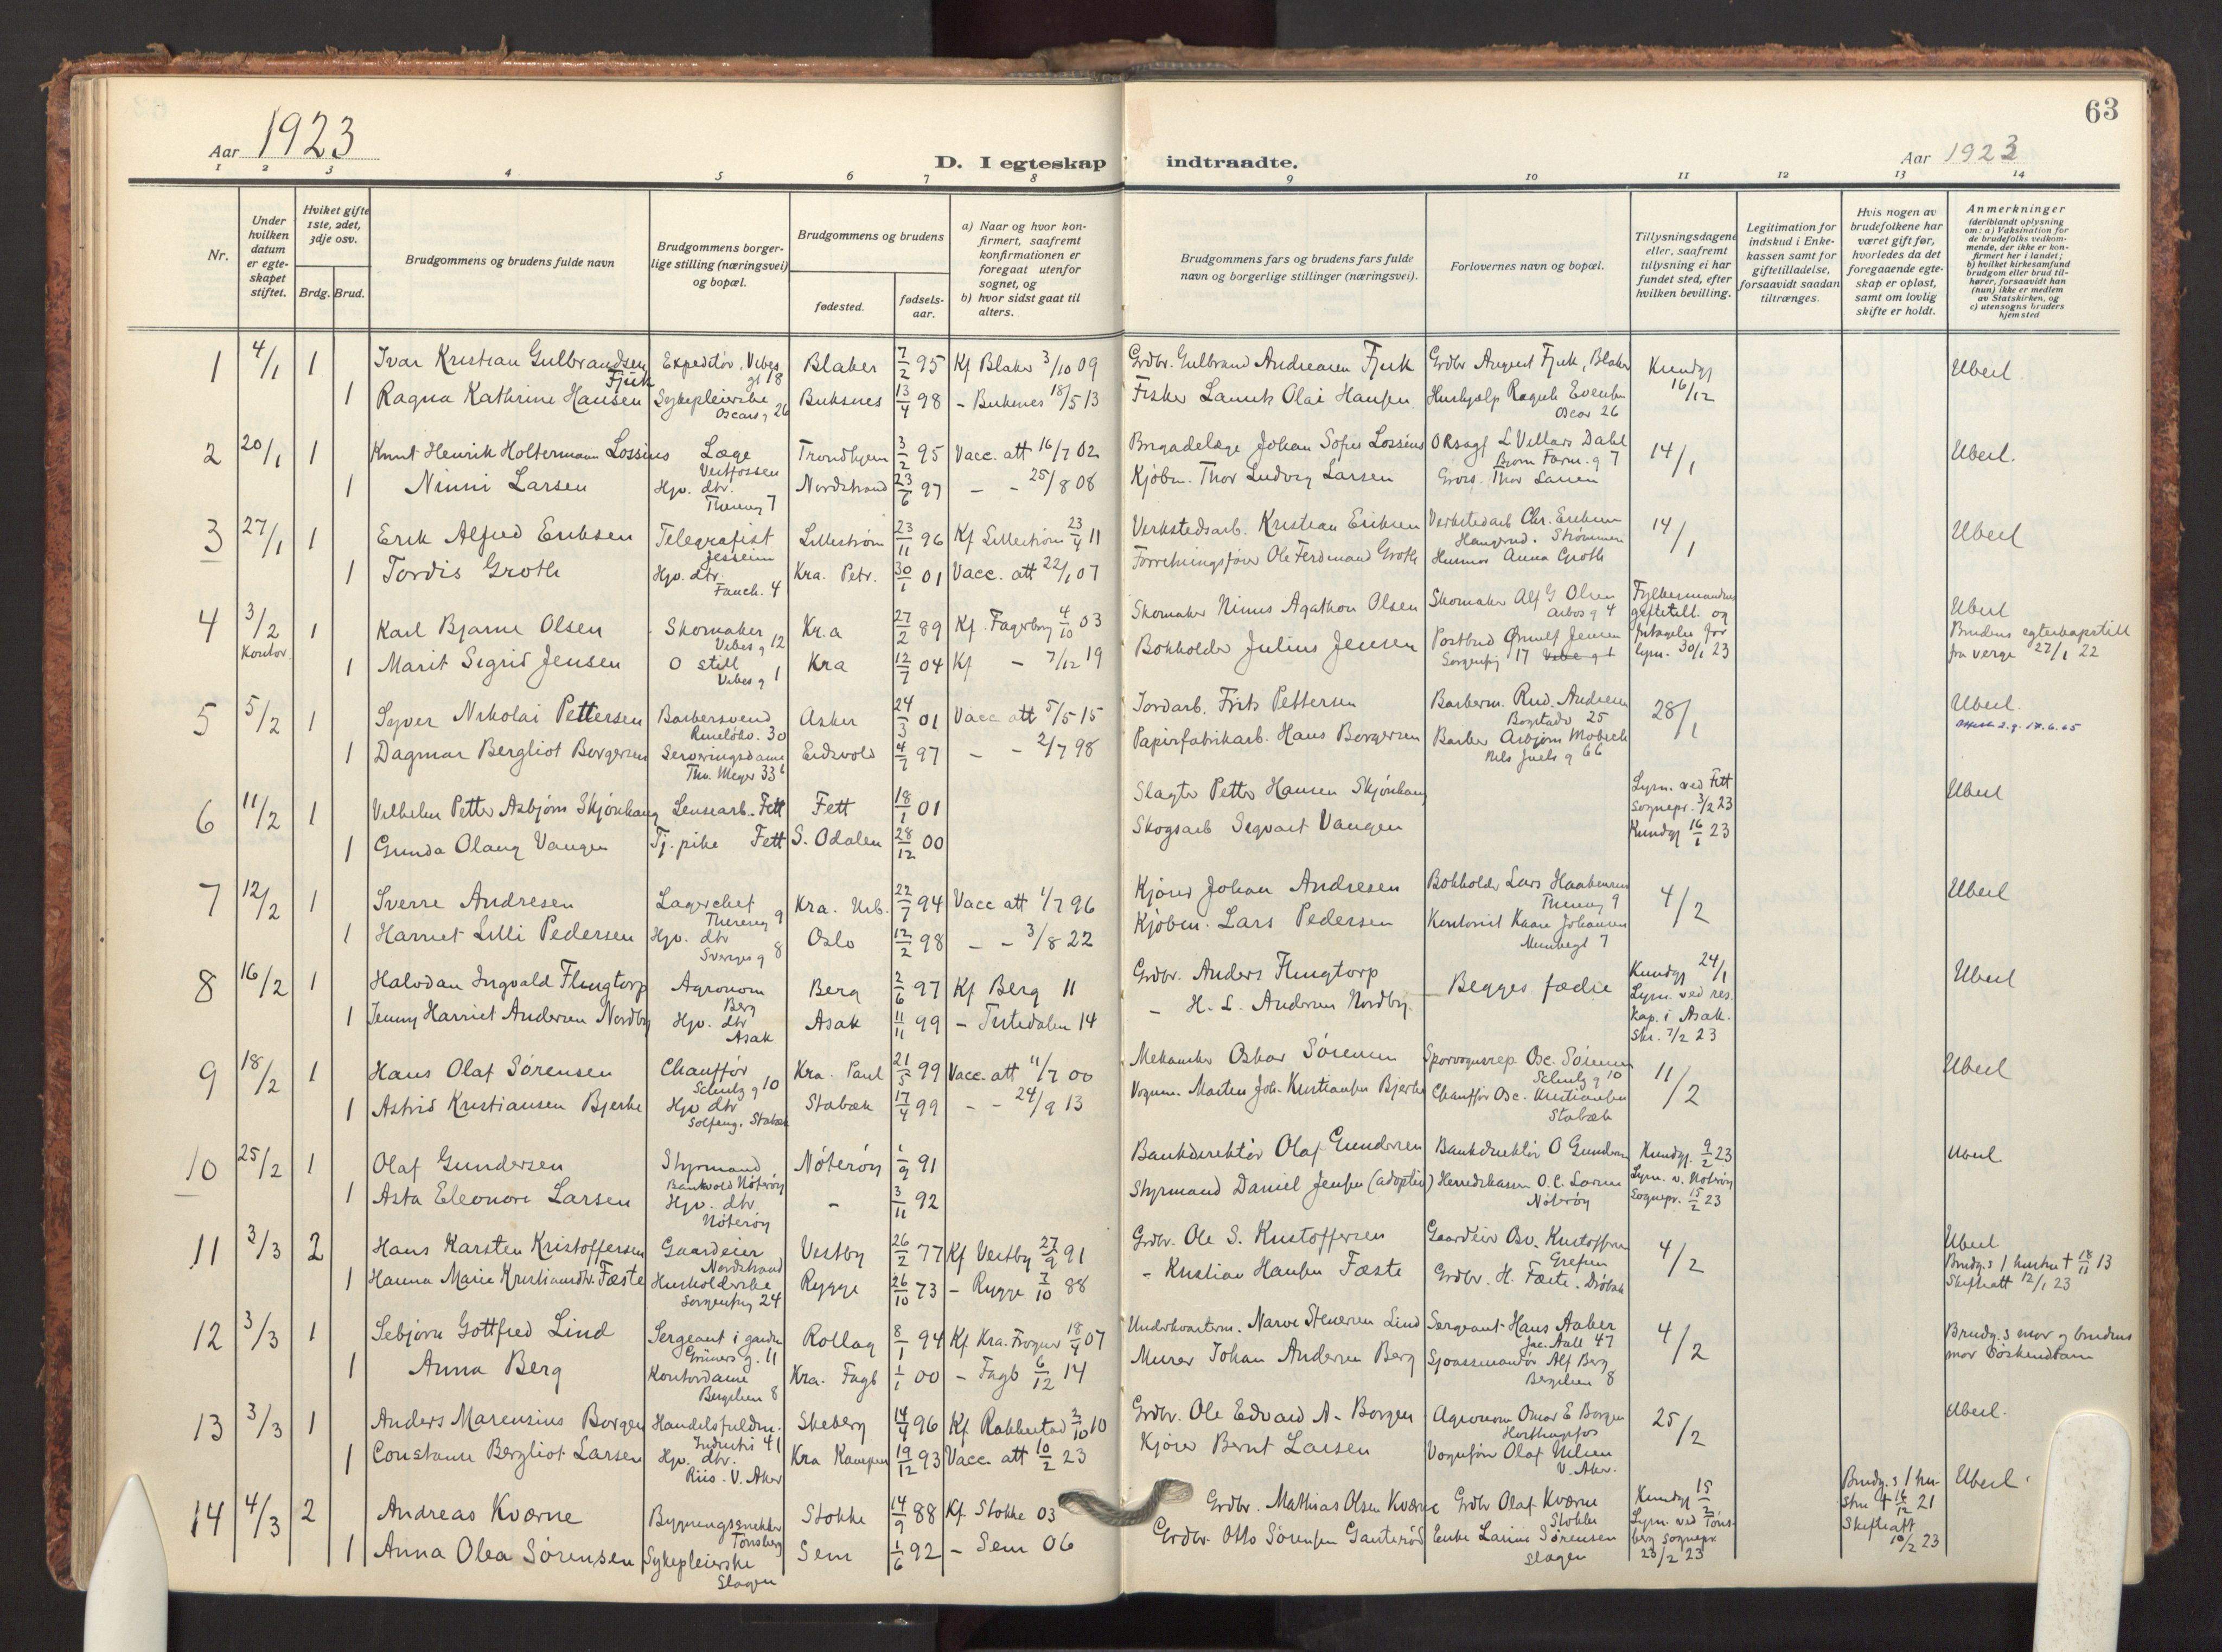 63
Aar 1923
D. I egteskap indtraadte.
Aar 1923
1 2 3 4 5 6 7 8 9 10 11 12 13 14
Nr.
Under hvilken datum er egteskapet stiftet.
Hviket gifte 1ste, 2det, 3dje osv.
Brdg. Brud.
Brudgommens og brudens fulde navn
Brudgommens borgerlige stilling (næringsvei) og bopæl.
Brudgommens og brudens
fødested.
fødselsaar.
a) Naar og hvor konfirmert, saafremt konfirmationen er foregaat utenfor sognet, og
b) hvor sidst gaat til alters.
Brudgommens fars og brudens fars fulde navn og borgerlige stillinger (næringsvei).
Forlovernes navn og bopæl.
Tillysningsdagene eller, saafremt tillysning ei har fundet sted, efter hvilken bevilling.
Legitimation for indskud i Enkekassen samt for giftetilladelse, forsaavidt saadan tiltrænges.
Hvis nogen av brudefolkene har været gift før, hvorledes da det foregaaende egteskap er opløst, samt om lovlig skifte er holdt.
Anmerkninger
(deriblandt oplysning om: a) Vaksination for de brudefolks vedkommende, der ikke er konfirmert her i landet; b) hvilket kirkesamfund brudgom eller brud tilhører, forsaavidt han (hun) ikke er medlem av Statskirken, og c) utensogns bruders hjemsted
1 4/1 1 Ivar Kristian Gulbrandsen Fjuk Expeditør, Vibes gt 18 Blaker 7/2 95 Kf Blaker 3/10 09 Grdbr. Gulbrand Andreasen Fjuk Grdbr August Fjuk, Blaker Kundgj 16/12 Uberl.
1 Ragna Kathrine Hansen Sykepleierske Oscars g 26 Buksnes 13/4 98 - Buksnes 18/5 13 Fisker Olai Hansen Oscar 26
2 20/1 1 Knut Henrik Holtermann Lossius Læge Vestfossen Trondhjem 3/2 95 Vacc. att 16/7 02 Brigadelæge Johan Sofus Lossius ORsagf L Villars Dahl Bjørn Farm. g 7 14/1 Uberl.
1 Ninni Larsen Hjv. dtr. Thereseg 7 Nordstrand 23/6 97 - - 25/8 08 Kjøbm. Thor Ludvig Larsen Gross. Thor Larsen
3 27/1 1 Erik Alfred Eriksen Telegrafist Jessheim Lillestrøm 23/11 96 Kf Lillestrøm 23/4 11 Verkstedsarb. Kristian Eriksen Verkstedarb Chr. Eriksen Strømmen 14/1 Uberl
1 Tordis Groth Hjv. dtr. Fauch. 4 Kra. Petr. 30/1 01 Vacc. att 22/1 07 Forretningsfører Ole Ferdinand Groth Husmor Anna Groth
4 3/2 Kontor. 1 Karl Bjarne Olsen Skomaker Vibes g 12 Kr.a 27/2 89 Kf. Fagerborg 4/10 03 Skomaker Nimus Agathon Olsen Skomaker Alf G Olsen Arbos g 4 Fylkesmandens giftetill. og fritagelse for lysn. 30/1 23 Uberl
1 Marit Sigrid Jensen O still Vibes g 1 Kra 12/7 04 Kf - 7/12 19 Bokholder Julius Jensen Postbud Ørnulf Jensen Sorgenfrig 17 Vibe g 1 Brudens egteskapstill fra verge 27/1 22
5 5/2 1 Syver Nikolai Pettersen Barbersvend 30 Asker 24/3 01 Vacc att 5/5 15 Jordarb. Frits Pettersen Barberm. Rud. Andresen Bogstadv 25 28/1 Uberl.
1 Dagmar Bergliot Borgersen Serveringsdame Thv. Meyer 33 b Eidsvold 4/7 97 - - 2/7 98 Papirfabrikarb. Hans Borgersen Barber Asbjørn Nils Juels g 66
6 11/2 1 Vilhelm Petter Asbjørn Skjønhaug Lensearb. Fett Fett 18/1 01 Slagter Petter Hansen Skjønhaug Lysn. ved Fett Sognepr. 3/2 23 Uberl
1 Gunda Olaug Vangen Tj. pike Fett S. Odalen 28/12 00 Skogsarb Sigvart Vangen Kundgj 16/1 23
7 12/2 1 Sverre Andresen Lagerchef Thereseg 9 Kra. Urb. 22/7 94 Vacc att 1/7 96 Kjører Johan Andresen Bokholder Lars Thereseg 9 4/2 Uberl
1 Harriet Lilli Pedersen Hjv. dtr Sverres g 8 Oslo 12/2 98 - - 3/8 22 Kjøbm. Lars Pedersen Kontorist Kaare Johansen 7
8 16/2 1 Halvdan Ingvald Flingtorp Agronom Berg Berg 2/6 97 Kf Berg 11 Grdbr. Anders Flingtorp Begges fædre Kundgj 24/1 Lysn. ved res. kap. i Asak. Skr. 7/2 23 Uberl
1 Jenny Harriet Andersen Nordby Hjv. dtr Asak Asak 11/11 99 - Tistedalen 14 - H. L. Andersen Nordby.
9 18/2 1 Hans Olaf Sørensen Chauffør Schultz g 10 Kra. Paul 21/5 99 Vacc. att 11/7 00 Mekaniker Oskar Sørensen Sporvognsrep. Osc. Sørensen Schultz g 10 11/2 Uberl
1 Astrid Kristiansen Bjerke Hjv dtr Solfeng. Stabæk Stabæk 17/4 99 - - 24/9 13 Vognm. Marten Joh. Kristiansen Bjerke Chauffør Osc. Kristiansen Stabæk
10 25/2 1 Olaf Gundersen Styrmand Bankvold Nøterøy Nøterøy 1/9 91 Bankdirektør Olaf Gundersen Bankdirektør O Gundersen Kundgj. 9/2 23 Lysn. v. Nøterøy Sognepr. 15/2 23 Uberl
1 Asta Eleonore Larsen Hjv. dtr. Nøterøy - 3/11 92 Styrmand Daniel Jensen (adoptiv) Herredskasser O. C. Larsen Nøterøy
11 3/3 2 Hans Karsten Kristoffersen Gaardeier Nordstrand Vestby 26/2 77 Kf Vestby 27/9 91 Grdbr. Ole S. Kristoffersen Gaardeier Osv. Kristoffersen Grefsen 4/2 Uberl Brudg.s 1 hustru + 18/11 13 Skifteatt 12/1 23
1 Hanna Marie Kristiansdtr. Fæste Husholderske Sorgenfrig 24 Rygge 26/10 73 - Rygge 7/10 88 - Kristian Hansen Fæste Grdbr. H. Fæste. Drøbak
12 3/3 1 Sebjørn Gottfred Lind Sergeant i garden Grüners g. 11 Rollag 8/1 94 Kf Kra. Frogner 18/4 07 Underkvarterm. Narve Steneren Lind Sergeant Hans Aaber Jac. Aall 47 4/2 Brudg.s mor og brudens mor søskendbarn
1 Anna Berg Kontordame Bergslien 8 Kra. Fagb 1/1 00 - Fagb 6/12 14 Murer Johan Andersen Berg Alf Berg Bergslien 8
13 3/3 1 Anders Marensius Borgen Handelsfuldm. Industri 41 Skeberg 14/4 96 Kf. Rakkestad 2/10 10 Grdbr. Ole Edvard A. Borgen Agronom Omar E Borgen 25/2 Uberl.
1 Constanse Bergliot Larsen Hjv. dtr. Riis. V. Aker Kra Kampen 19/12 93 Vacc. att 10/2 23 Kjører Bernt Larsen Vognfører Olaf Nilsen V. Aker.
14 4/3 2 Andreas Kværne Bygningssnekker Tønsberg Stokke 14/9 88 Kf Stokke 03 Grdbr. Mathias Olsen Kværne Grdbr Olaf Kværne Stokke Kundgj 15/2 Lysn. ved Tønsberg Sognepr. 23/2 23 Brudg.s 1 hustru + 16/12 21 Skifteatt 10/2 23 Uberl.
1 Anna Olea Sørensen Sykepleierske Slagen Sem 1/6 92 - Sem 06 Grdbr. Otto Sørensen Ganterød Enke Larine Sørensen Slagen